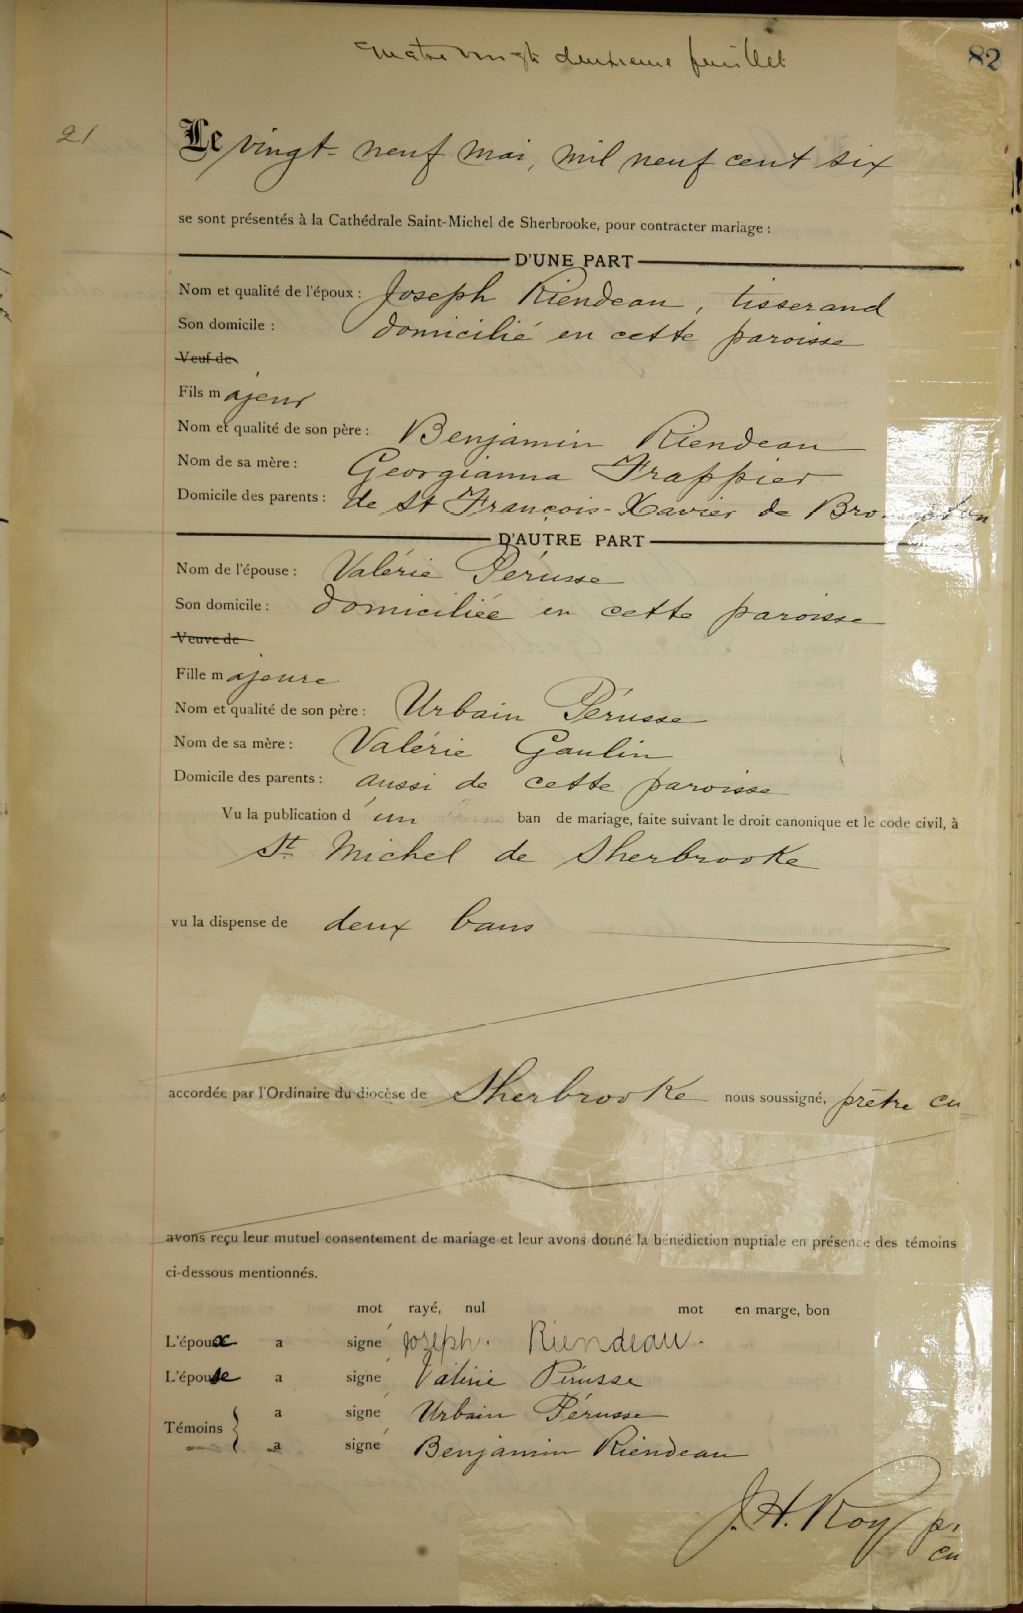 quatre vingt deuxieme feuillet
82
21
Le vingt-neuf mai, mil neuf cent six
se sont présentés à la Cathédrale Saint-Michel de Sherbrooke, pour contracter mariage :
D'UNE PART
Nom et qualité de l'époux : Joseph Riendeau, tisserand
Son domicile : domicilié en cette paroisse
Veuf de
Fils majeur
Nom et qualité de son père : Benjamin Riendeau
Nom de sa mère : Georgianna Frappier
Domicile des parents : de St François-Xavier de
D'AUTRE PART
Nom de l'épouse : Valérie Pérusse
Son domicile : domiciliée en cette paroisse
Veuve de
Fille majeure
Nom et qualité de son père : Urbain Pérusse
Nom de sa mère : Valérie Gaulin
Domicile des parents : aussi de cette paroisse
Vu la publication d'un ban de mariage, faite suivant le droit canonique et le code civil, à
St. Michel de Sherbrooke
vu la dispense de deux bans
accordée par l'Ordinaire du diocèse de Sherbrooke nous soussigné, prêtre cu
avons reçu leur mutuel consentement de mariage et leur avons donné la bénédiction nuptiale en présence des témoins
ci-dessous mentionnés.
mot rayé, nul mot en marge, bon
L'époux a signé Joseph. Riendeau.
L'épouse a signé Valérie Pérusse
Témoins { a signé Urbain Pérusse
a signé Benjamin Riendeau
J. H. Roy pr
cu